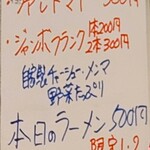 ・冷しトマト 300円
・ジャンボフランク 1本200円
2本300円
自家製チャーシュー・メンマ
野菜たっぷり
本日のラーメン 500円
限定